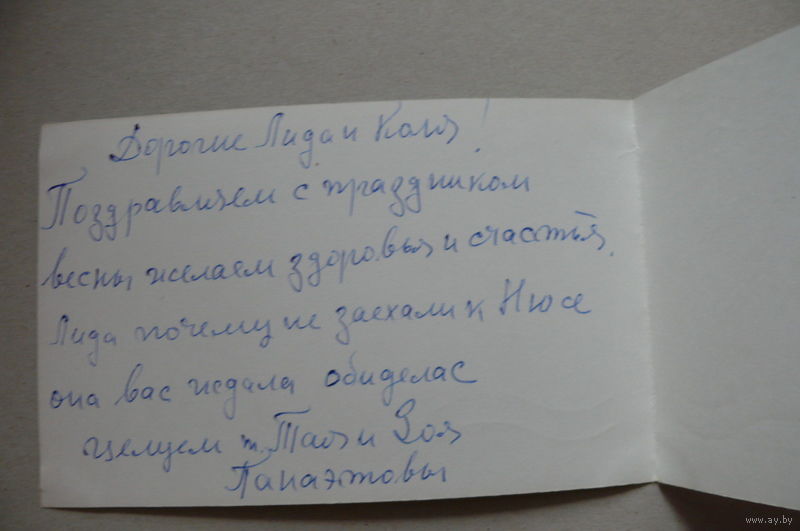 Дорогие Лида и Коля!
Поздравляем с праздником
весны желаем здоровья и счастья.
Лида почему не заехали к Нюсе
она вас ждала обиделас
целуем т. Тася и Зоя
Панаэтовы
www.ay.by